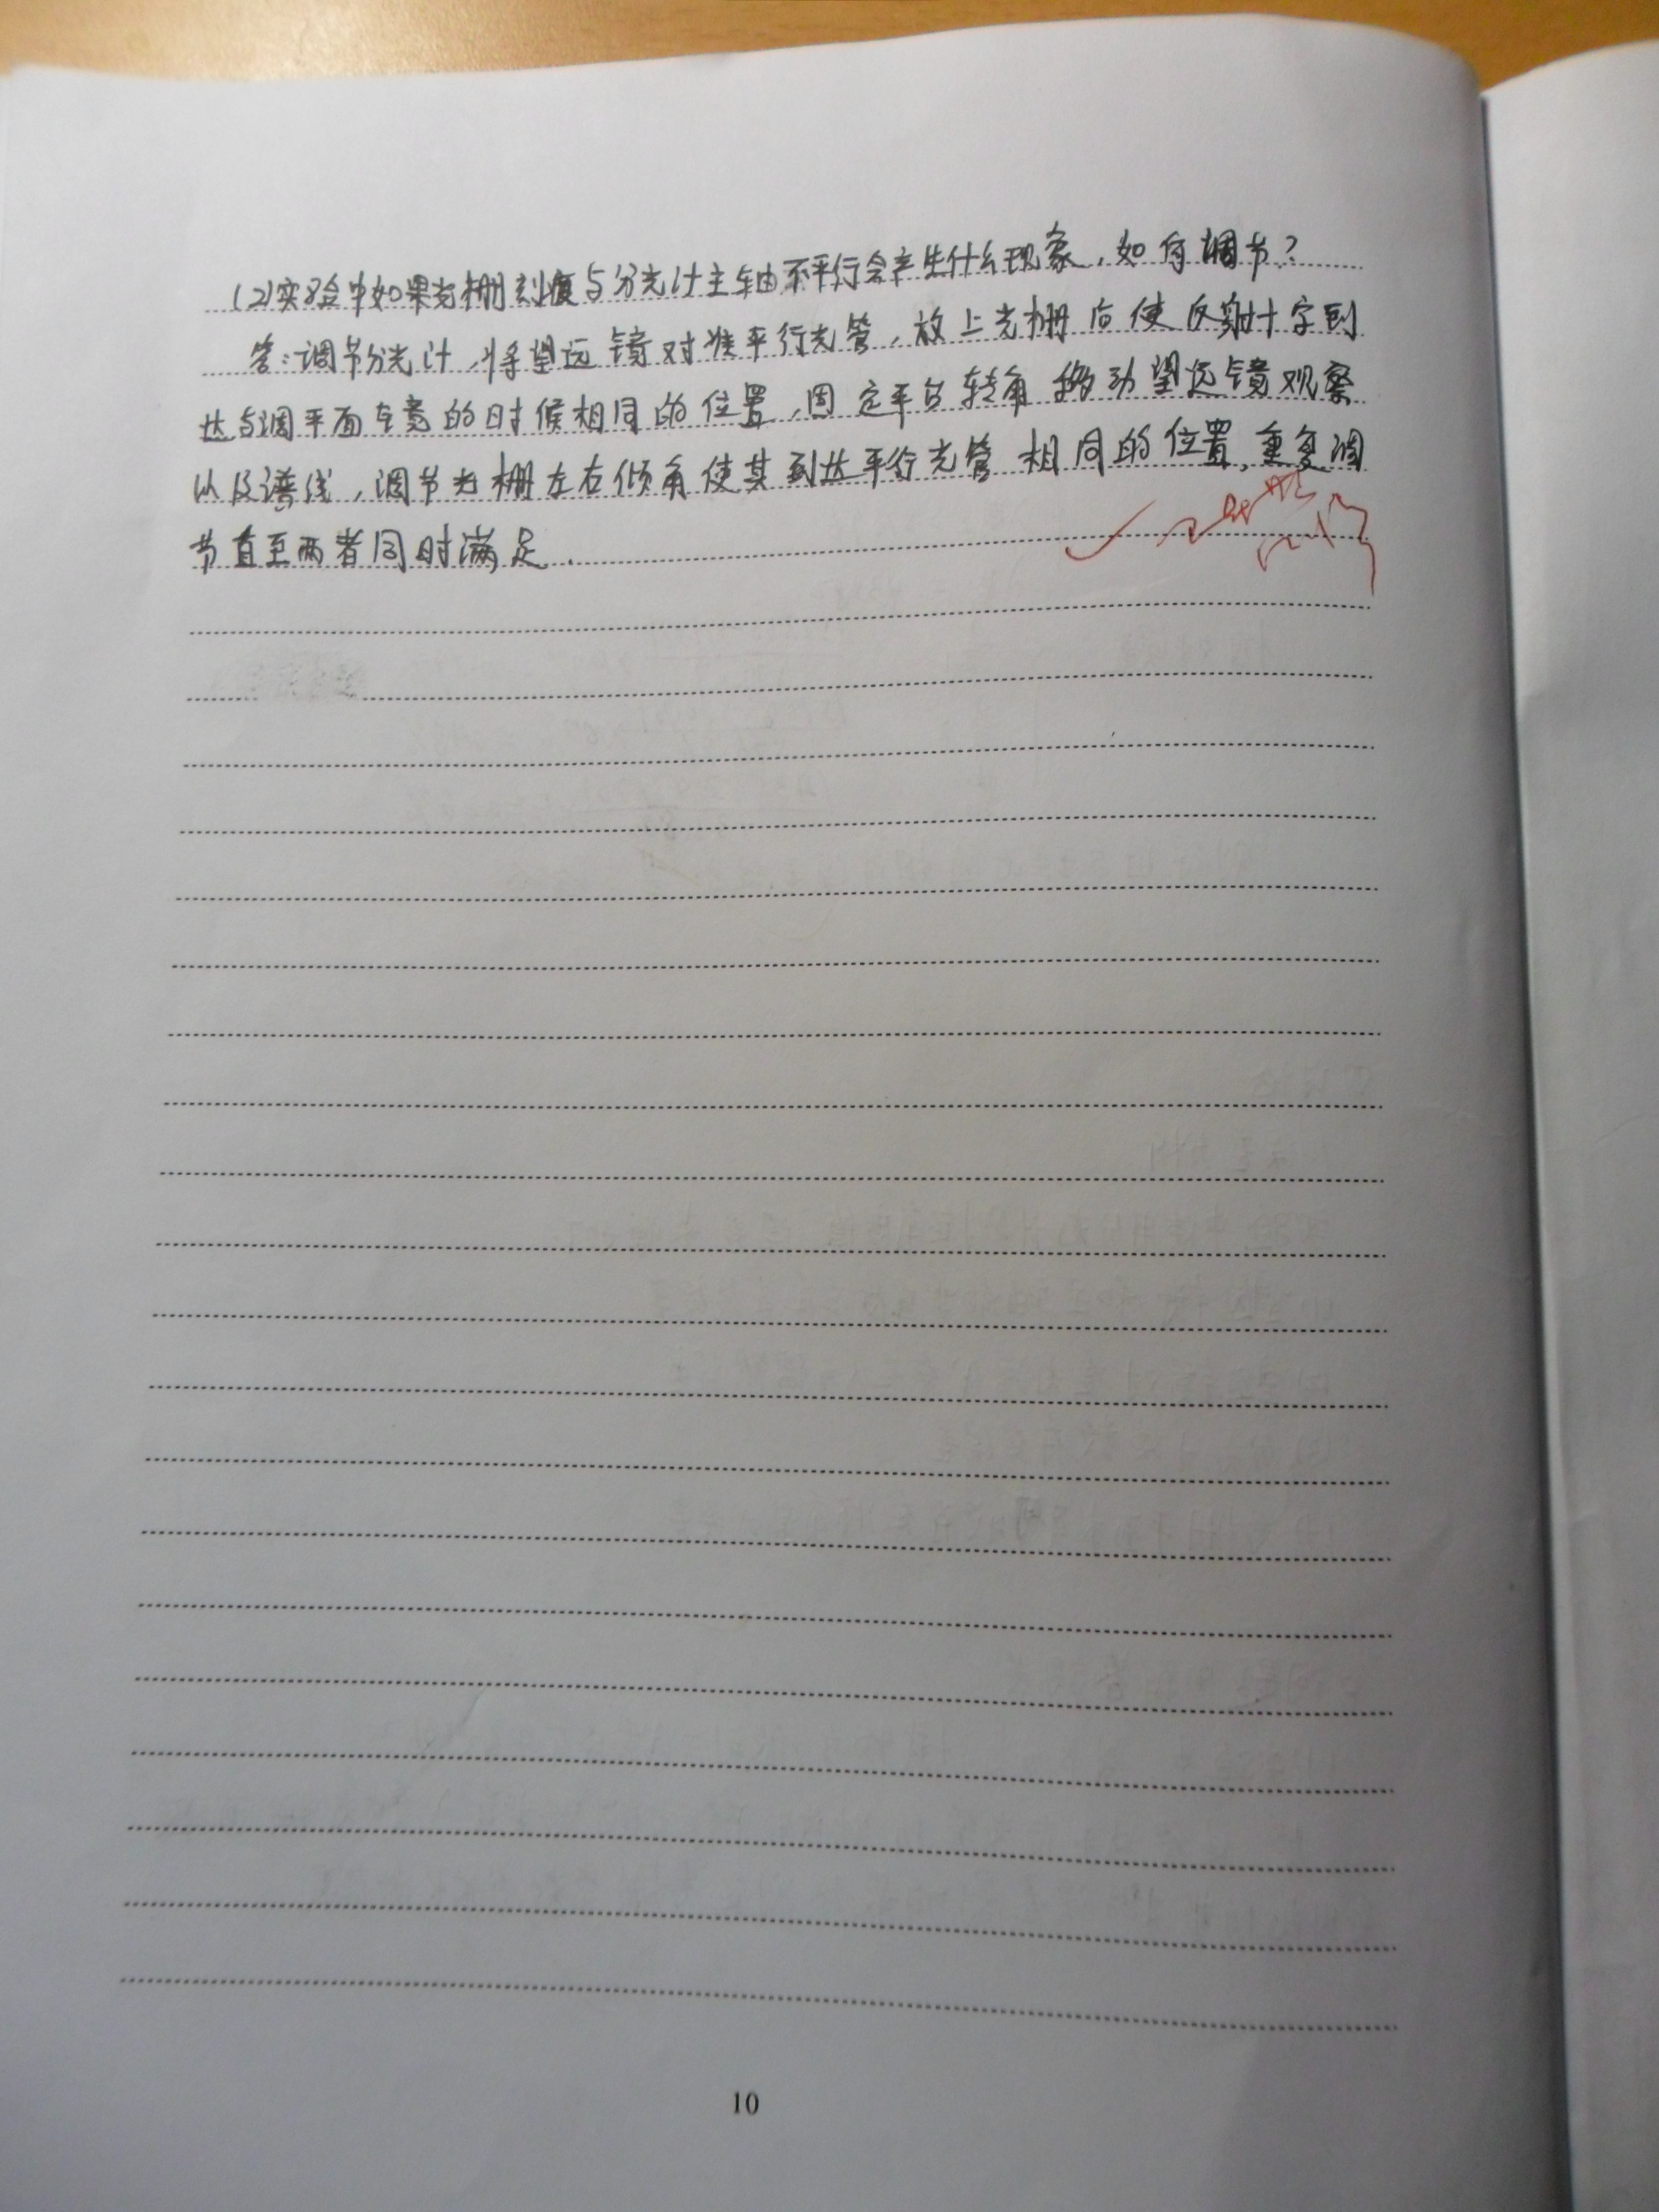 (2)实验中如果光栅刻痕与分光计主轴不平行会产生什么现象,如何调节?
答:调节分光计,将望远镜对准平行光管,放上光栅后使反射十字到
达与调平面车竟的时候相同的位置,固定平台转角 移动望远镜观察
以及谱线,调节光栅左右倾角使其到达平行光管相同的位置,重复调
节直至两者同时满足.
10